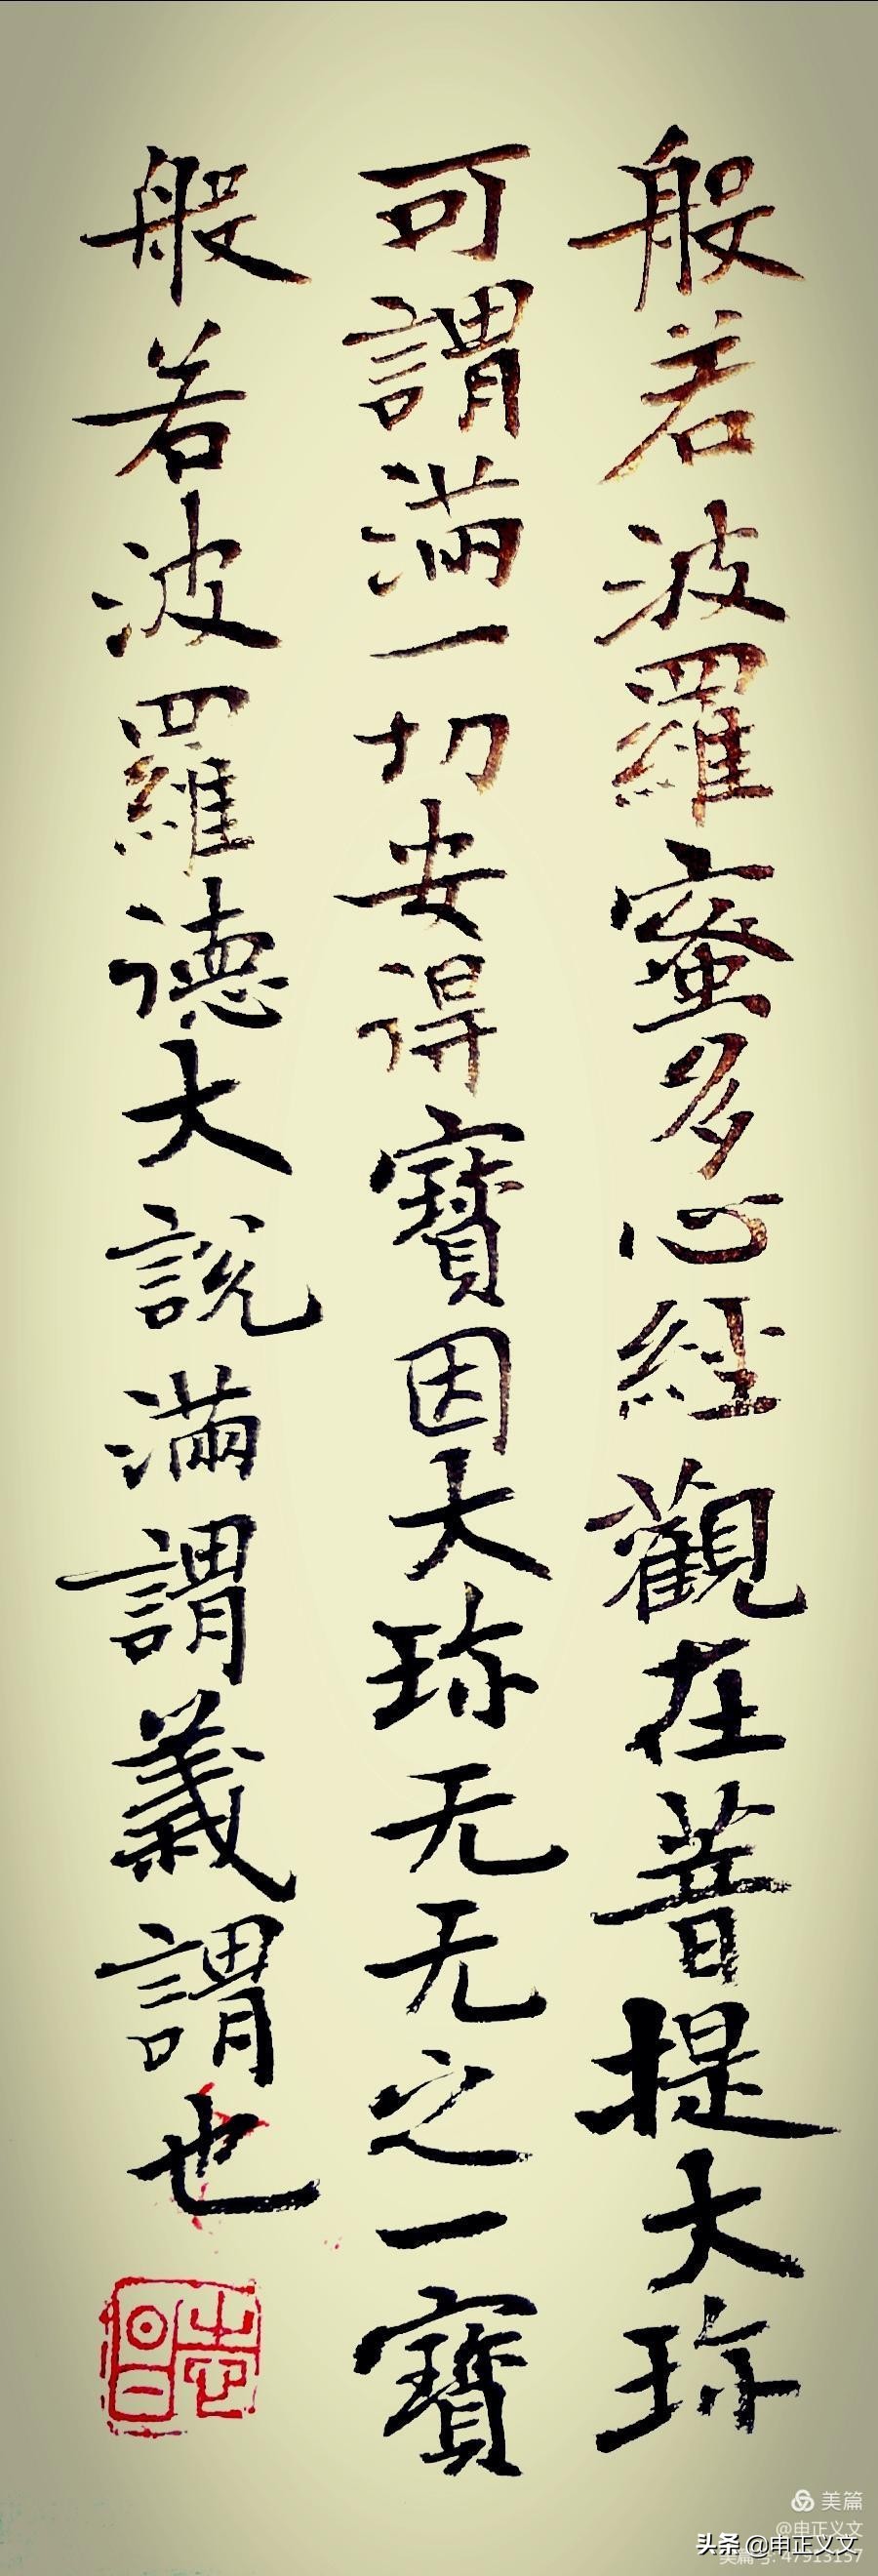 般若波羅蜜多心經觀在菩提大珎
可謂滿一切安得寶因大珎无无之一寶
般若波羅德大說滿謂義謂也
美篇
@申正义文
头条 @申正义文
美篇号: 47913157